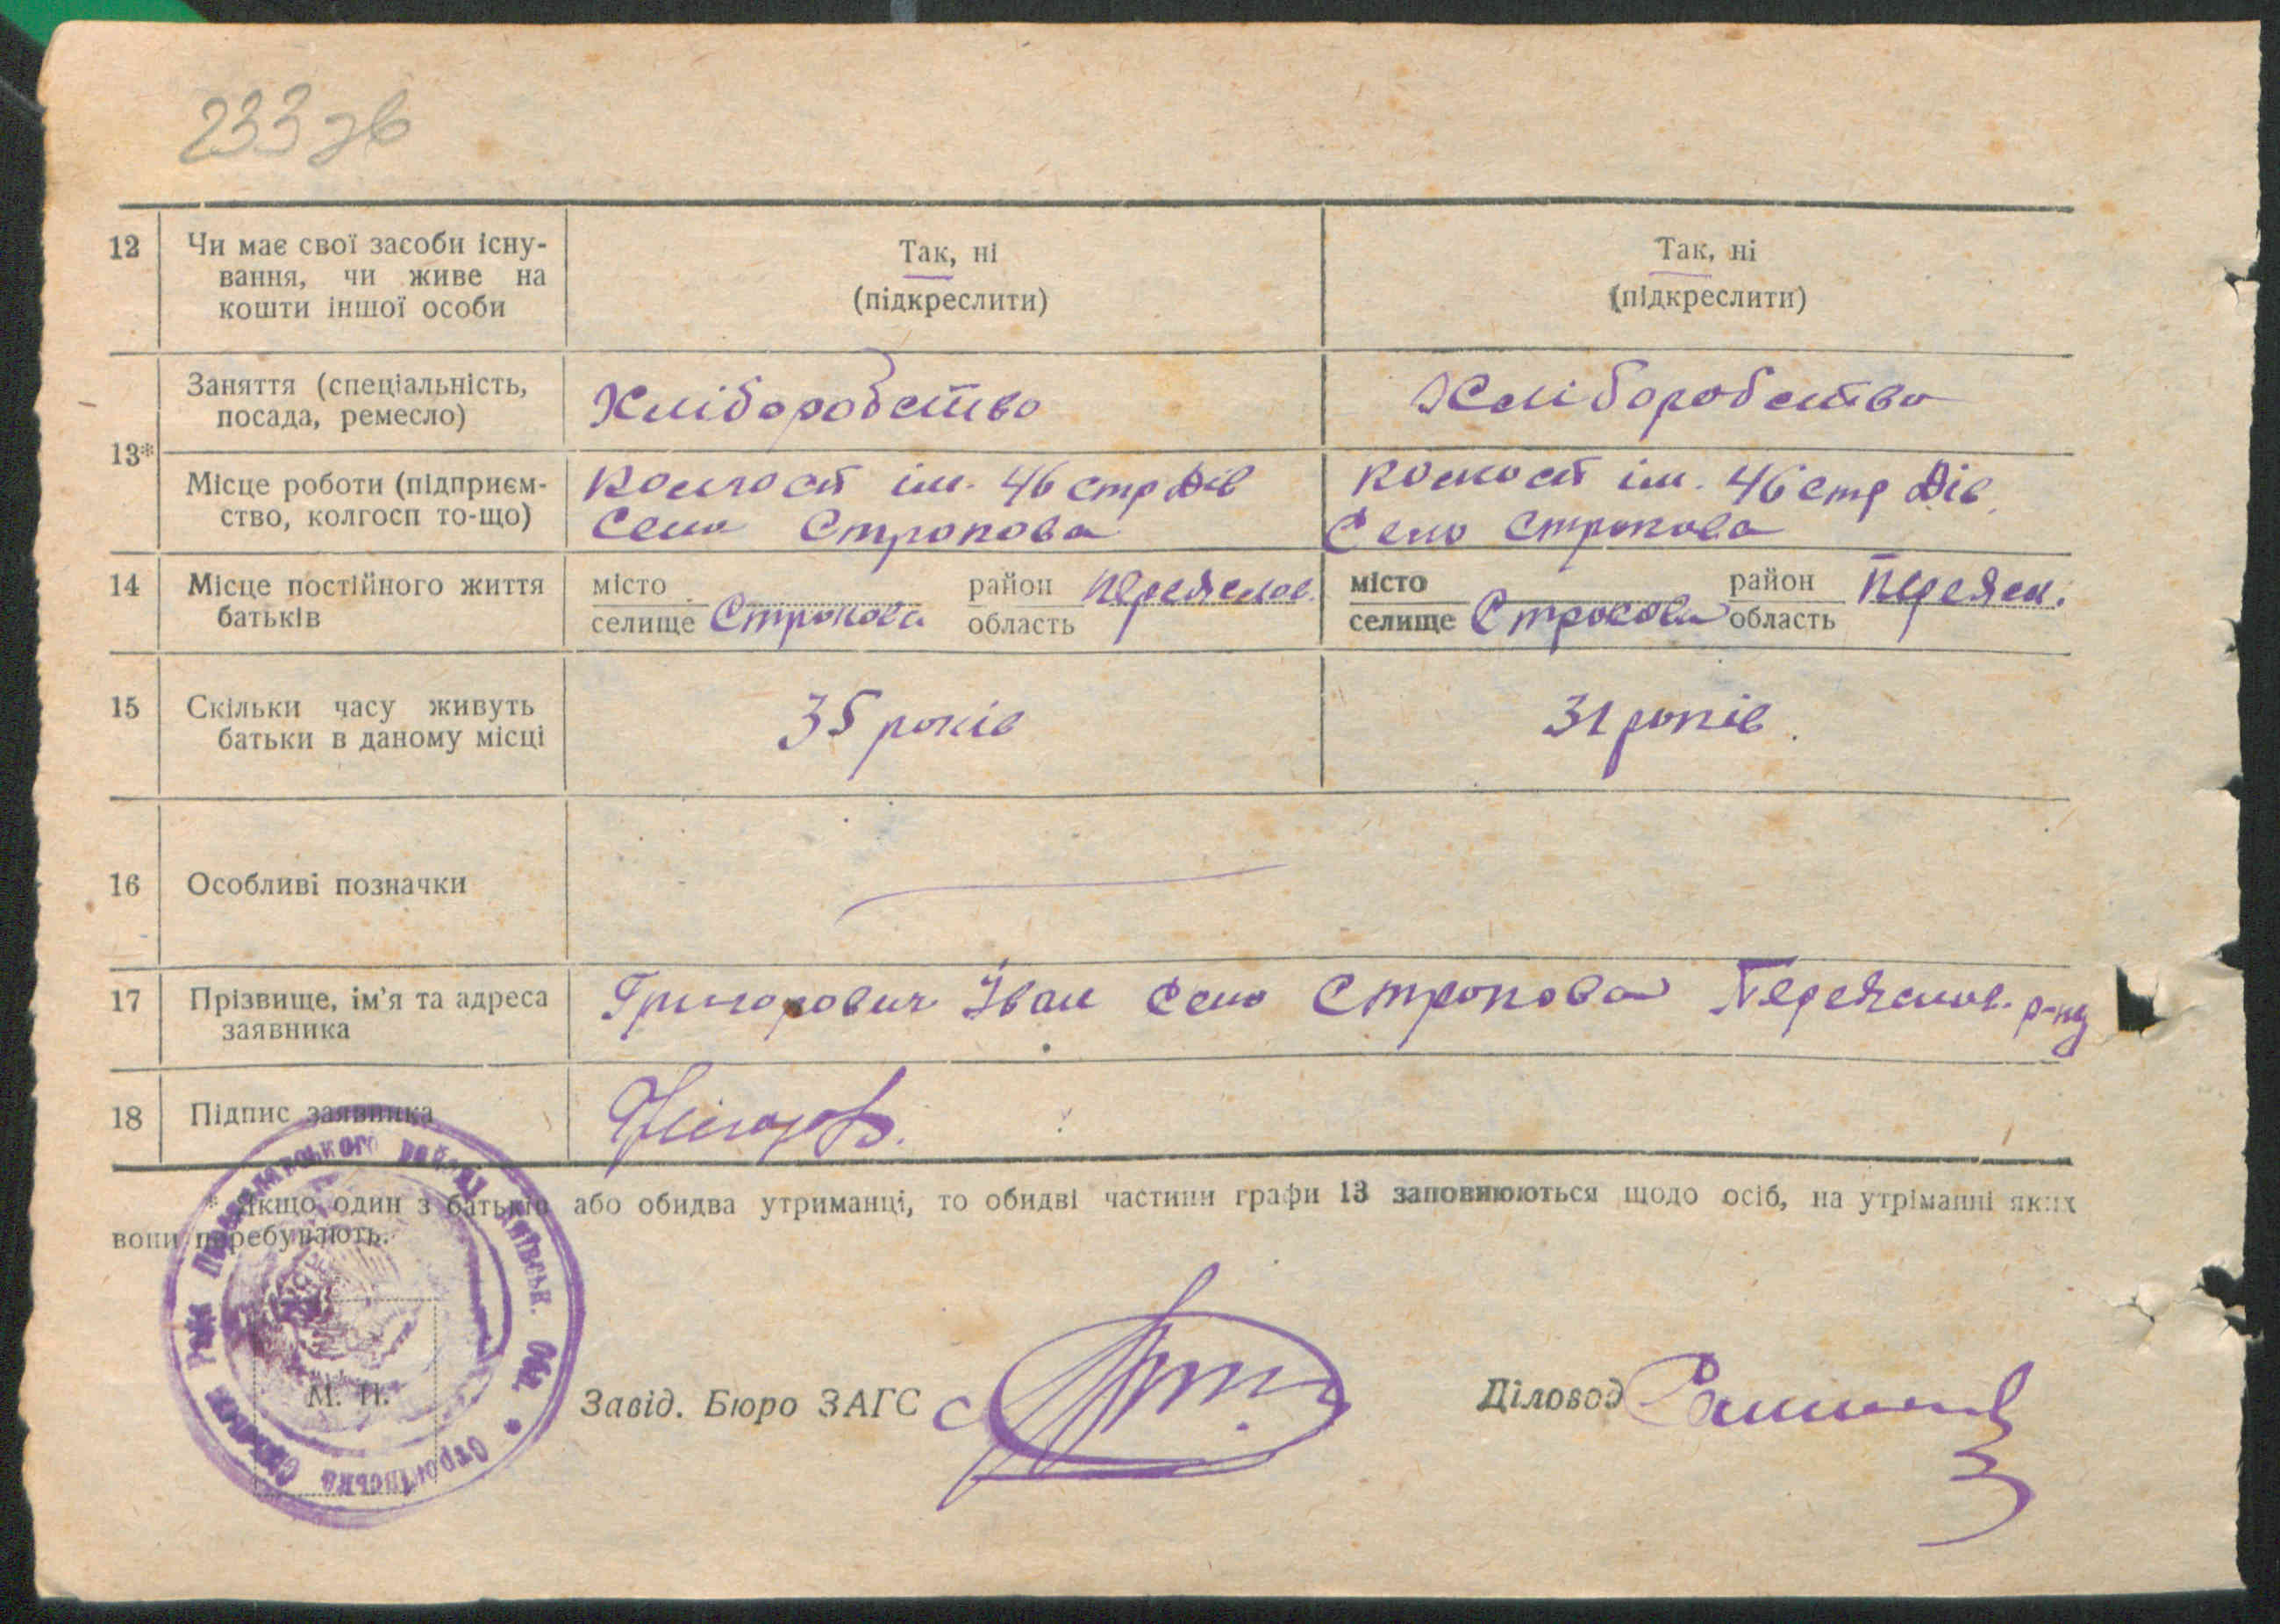 233 зв
12 Чи має свої засоби існу-
вання, чи живе на
кошти іншої особи
Так, ні
(підкреслити)
Так, ні
(підкреслити)
13*
Заняття (спеціальність,
посада, ремесло)
Хліборобство
Хліборобство
Місце роботи (підприєм-
ство, колгосп то-що)
Колгосп ім. 46 стр Див
Село Строкова
Колгосп ім. 46 стр Див.
Село Строкова
14 Місце постійного життя
батьків
місто
селище Строкова
район
область Переяслов.
місто
селище Строкова
район
область Переясл.
15 Скільки часу живуть
батьки в даному місці
35 років
31 років.
16 Особливі позначки
17 Прізвище, ім'я та адреса
заявника
Григорович Іван Село Строкова Переяслов. р-ну
18 Підпис заявника
* Якщо один з батьків або обидва утриманці, то обидві частини графи 13 заповнюються щодо осіб, на утріманні яких
вони перебувають.
М. П.
Завід. Бюро ЗАГС
Діловод